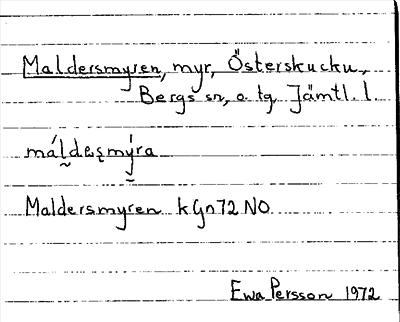 Maldersmyren, myr, Österskucku,
Bergs sn, o. tg, Jämtl. l.
máldeʂmýra
Maldersmyren kGn72 NO
Ewa Persson 1972